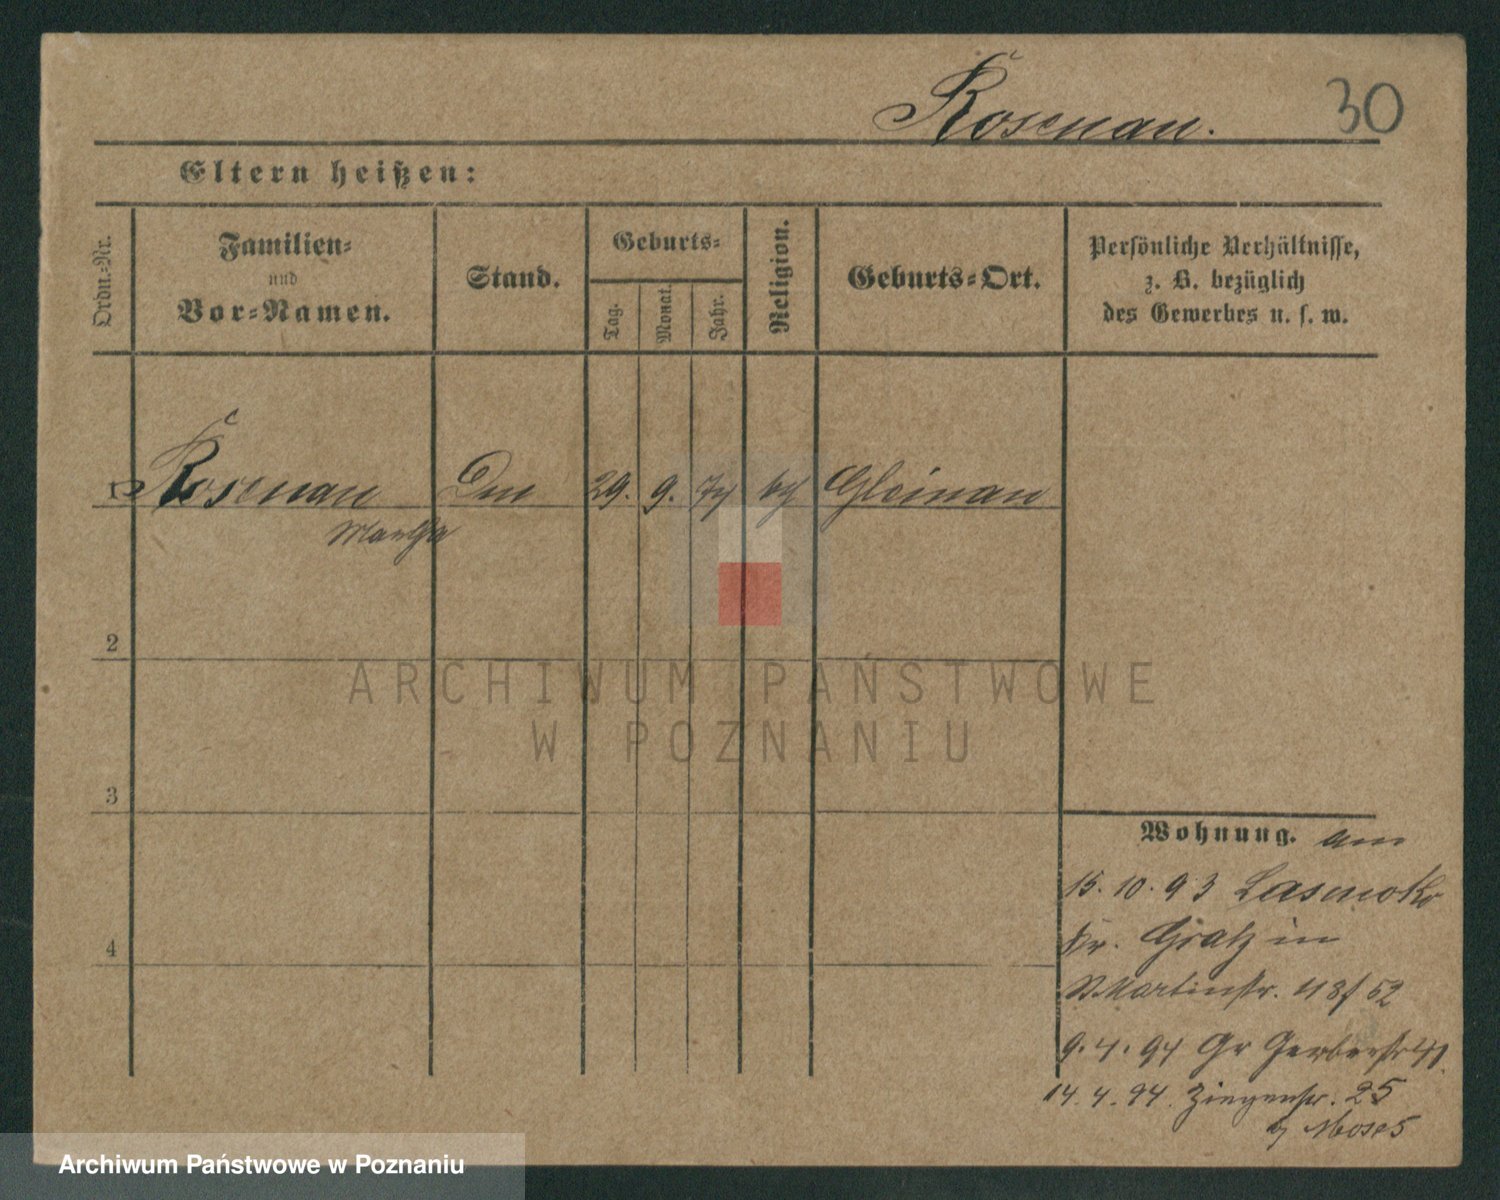 Rosenau.
30
Eltern heißen:
Ordn.-Nr.
Familien-
und
Vor-Namen.
Stand.
Geburts-
Tag.
Monat.
Jahr.
Religion.
Geburts-Ort.
Persönliche Verhältnisse,
z. B. bezüglich
des Gewerbes u. s. w.
1 Rosenau 29. 9. 74 Gleinau
Martha
2
3
4
Wohnung. am
15. 10. 93
Kr. Grätz in
St Martinstr. 52
9. 4. 94 Gr Gerberstr 41.
14. 4. 94. Ziegenstr. 25
b/ Moses
ARCHIWUM PAŃSTWOWE
W POZNANIU
Archiwum Państwowe w Poznaniu